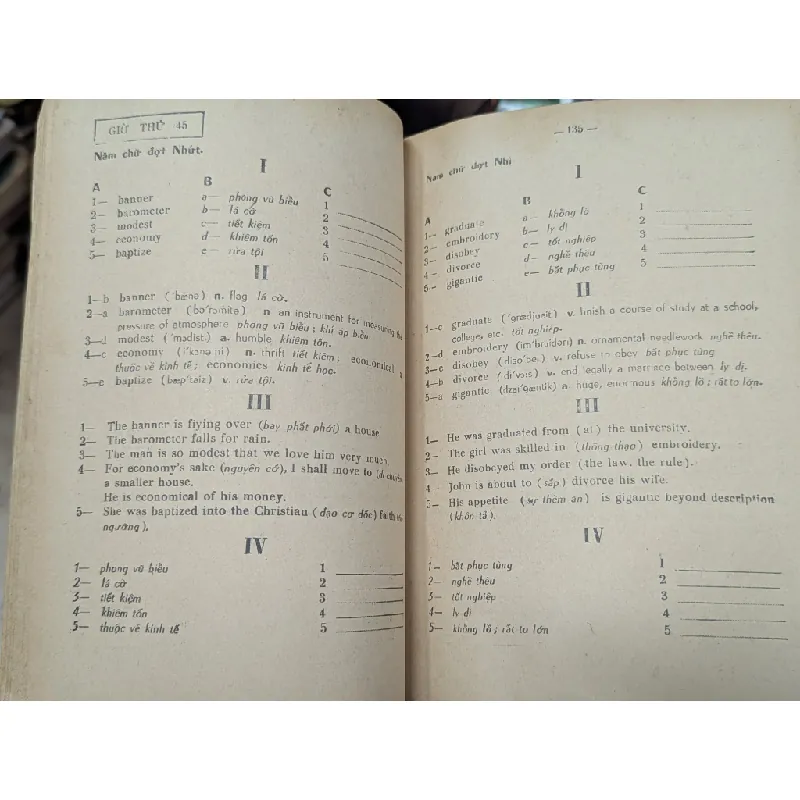 GIỜ THỨ 45
Năm chữ đợt Nhứt.
I
A B C
1— banner a— phong vũ biểu 1
2— barometer b— lá cờ 2
3— modest c— tiết kiệm 3
4— economy d— khiêm tốn 4
5— baptize e— rửa tội 5
II
1—b banner n. flag lá cờ.
2—a barometer n an instrument for measuring the
pressure of atmosphere phong vũ biểu ; khí áp biểu
3—d modest a. humble khiêm tốn.
4—c economy n. thrift tiết kiệm. economical a
thuộc về kinh tế ; economics kinh tế học.
5—e baptize v. rửa tội.
III
1— The banner is flying over (bay phất phới) a house
2— The barometer falls for rain.
3— The man is so modest that we love him very much
4— For economy's sake (nguyên cớ), I shall move to
a smaller house.
He is economical of his money.
5— She was baptized into the Christian (đạo cơ đốc) Faith
ngưỡng).
IV
1— phong vũ biểu 1
2— lá cờ 2
3— tiết kiệm 3
4— khiêm tốn 4
5— thuộc về kinh tế 5
— 135 —
Năm chữ đợt Nhì
I
A B C
1— graduate a— khổng lồ 1
2— embroidery b— ly dị 2
3— disobey c— tốt nghiệp 3
4— divorce d— nghề thêu 4
5— gigantic e— bất phục tùng 5
II
1—c graduate v. finish a course of study at a school,
college, etc. tốt nghiệp.
2—d embroidery n. ornamental needlework nghề thêu.
3—e disobey v. refuse to obey bất phục tùng
4—b divorce v. end legally a marriage between ly dị.
5—a gigantic a. huge, enormous khổng lồ ; rất to lớn.
III
1— He was graduated from (at) the university.
2— The girl was skilled in (thông thạo) embroidery.
3— He disobeyed my order (the law, the rule).
4 John is about to (sắp) divorce his wife.
5— His appetite (sự thèm ăn) is gigantic beyond description
(khôn tả).
IV
1— bất phục tùng 1
2— nghề thêu 2
3— tốt nghiệp 3
4— ly dị 4
5— khổng lồ ; rất to lớn 5